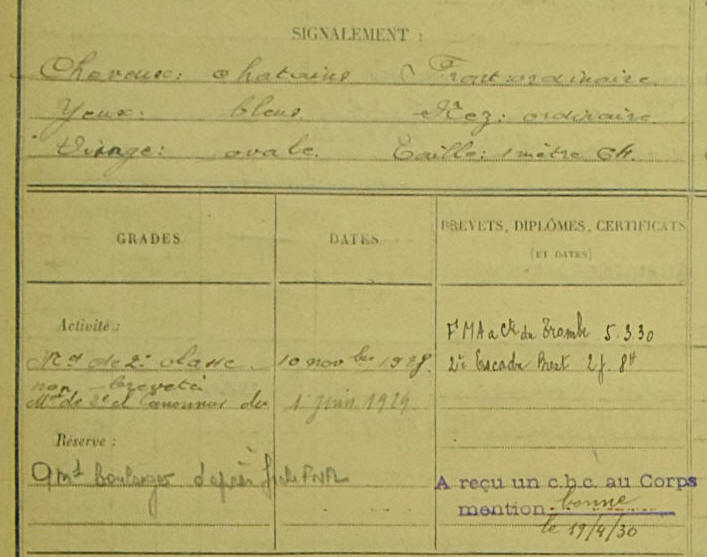 SIGNALEMENT :
Cheveux: chatains Front ordinaire
Yeux: bleus Nez: ordinaire
Visage: ovale. Taille: 1 mètre 64.
GRADES DATES BREVETS, DIPLÔMES, CERTIFICATS
(ET DATES)
Activité :
Mot de 2e classe 10 novbre 1928
non breveté
Mot de 2e cl Canonnier du 1 juin 1929
F MA a du Trombe 5.3.30
2e Escadre Brest 2 j. 8H
Réserve :
Qm Boulanger d'après
A reçu un c.b.c. au Corps
mention bonne
le 19/4/30